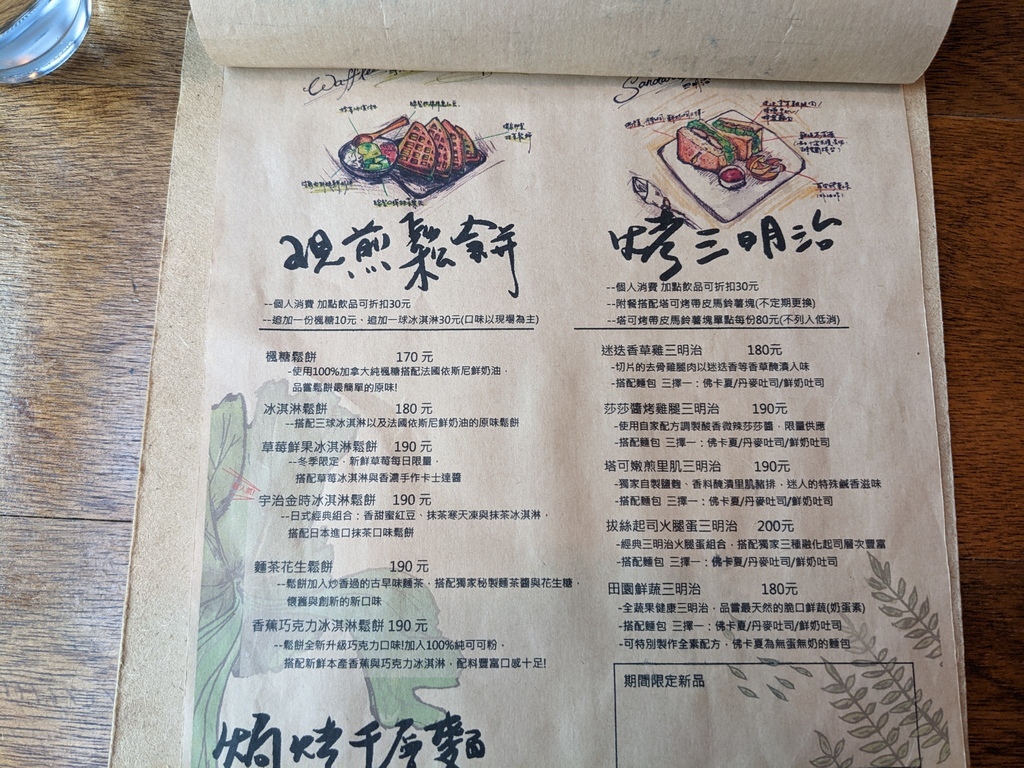 Waffle
現煎鬆餅
--個人消費 加點飲品可折扣30元
--追加一份楓糖10元、追加一球冰淇淋30元(口味以現場為主)
楓糖鬆餅 170 元
-使用100%加拿大純楓糖搭配法國依斯尼鮮奶油，
品嘗鬆餅最簡單的原味!
冰淇淋鬆餅 180 元
--搭配三球冰淇淋以及法國依斯尼鮮奶油的原味鬆餅
草莓鮮果冰淇淋鬆餅 190 元
--冬季限定，新鮮草莓每日限量，
搭配草莓冰淇淋與香濃手作卡士達醬
宇治金時冰淇淋鬆餅 190 元
--日式經典組合：香甜蜜紅豆、抹茶寒天凍與抹茶冰淇淋，
搭配日本進口抹茶口味鬆餅
麵茶花生鬆餅 190 元
--鬆餅加入炒香過的古早味麵茶，搭配獨家秘製麵茶醬與花生糖，
懷舊與創新的新口味
香蕉巧克力冰淇淋鬆餅 190 元
--鬆餅全新升級巧克力口味!加入100%純可可粉，
搭配新鮮本產香蕉與巧克力冰淇淋，配料豐富口感十足!
焗烤千層麵
烤三明治
--個人消費 加點飲品可折扣30元
--附餐搭配塔可烤帶皮馬鈴薯塊(不定期更換)
--塔可烤帶皮馬鈴薯塊單點每份80元(不列入低消)
迷迭香草雞三明治 180元
-切片的去骨雞腿肉以迷迭香等香草醃漬入味
-搭配麵包 三擇一：佛卡夏/丹麥吐司/鮮奶吐司
莎莎醬烤雞腿三明治 190元
-使用自家配方調製酸香微辣莎莎醬，限量供應
-搭配麵包 三擇一：佛卡夏/丹麥吐司/鮮奶吐司
塔可嫩煎里肌三明治 190元
-獨家自製鹽麴、香料醃漬里肌豬排，迷人的特殊鹹香滋味
-搭配麵包 三擇一：佛卡夏/丹麥吐司/鮮奶吐司
拔絲起司火腿蛋三明治 200元
-經典三明治火腿蛋組合，搭配獨家三種融化起司層次豐富
-搭配麵包 三擇一：佛卡夏/丹麥吐司/鮮奶吐司
田園鮮蔬三明治 180元
-全蔬果健康三明治，品嘗最天然的脆口鮮蔬(奶蛋素)
-搭配麵包 三擇一：佛卡夏/丹麥吐司/鮮奶吐司
-可特別製作全素配方，佛卡夏為無蛋無奶的麵包
期間限定新品